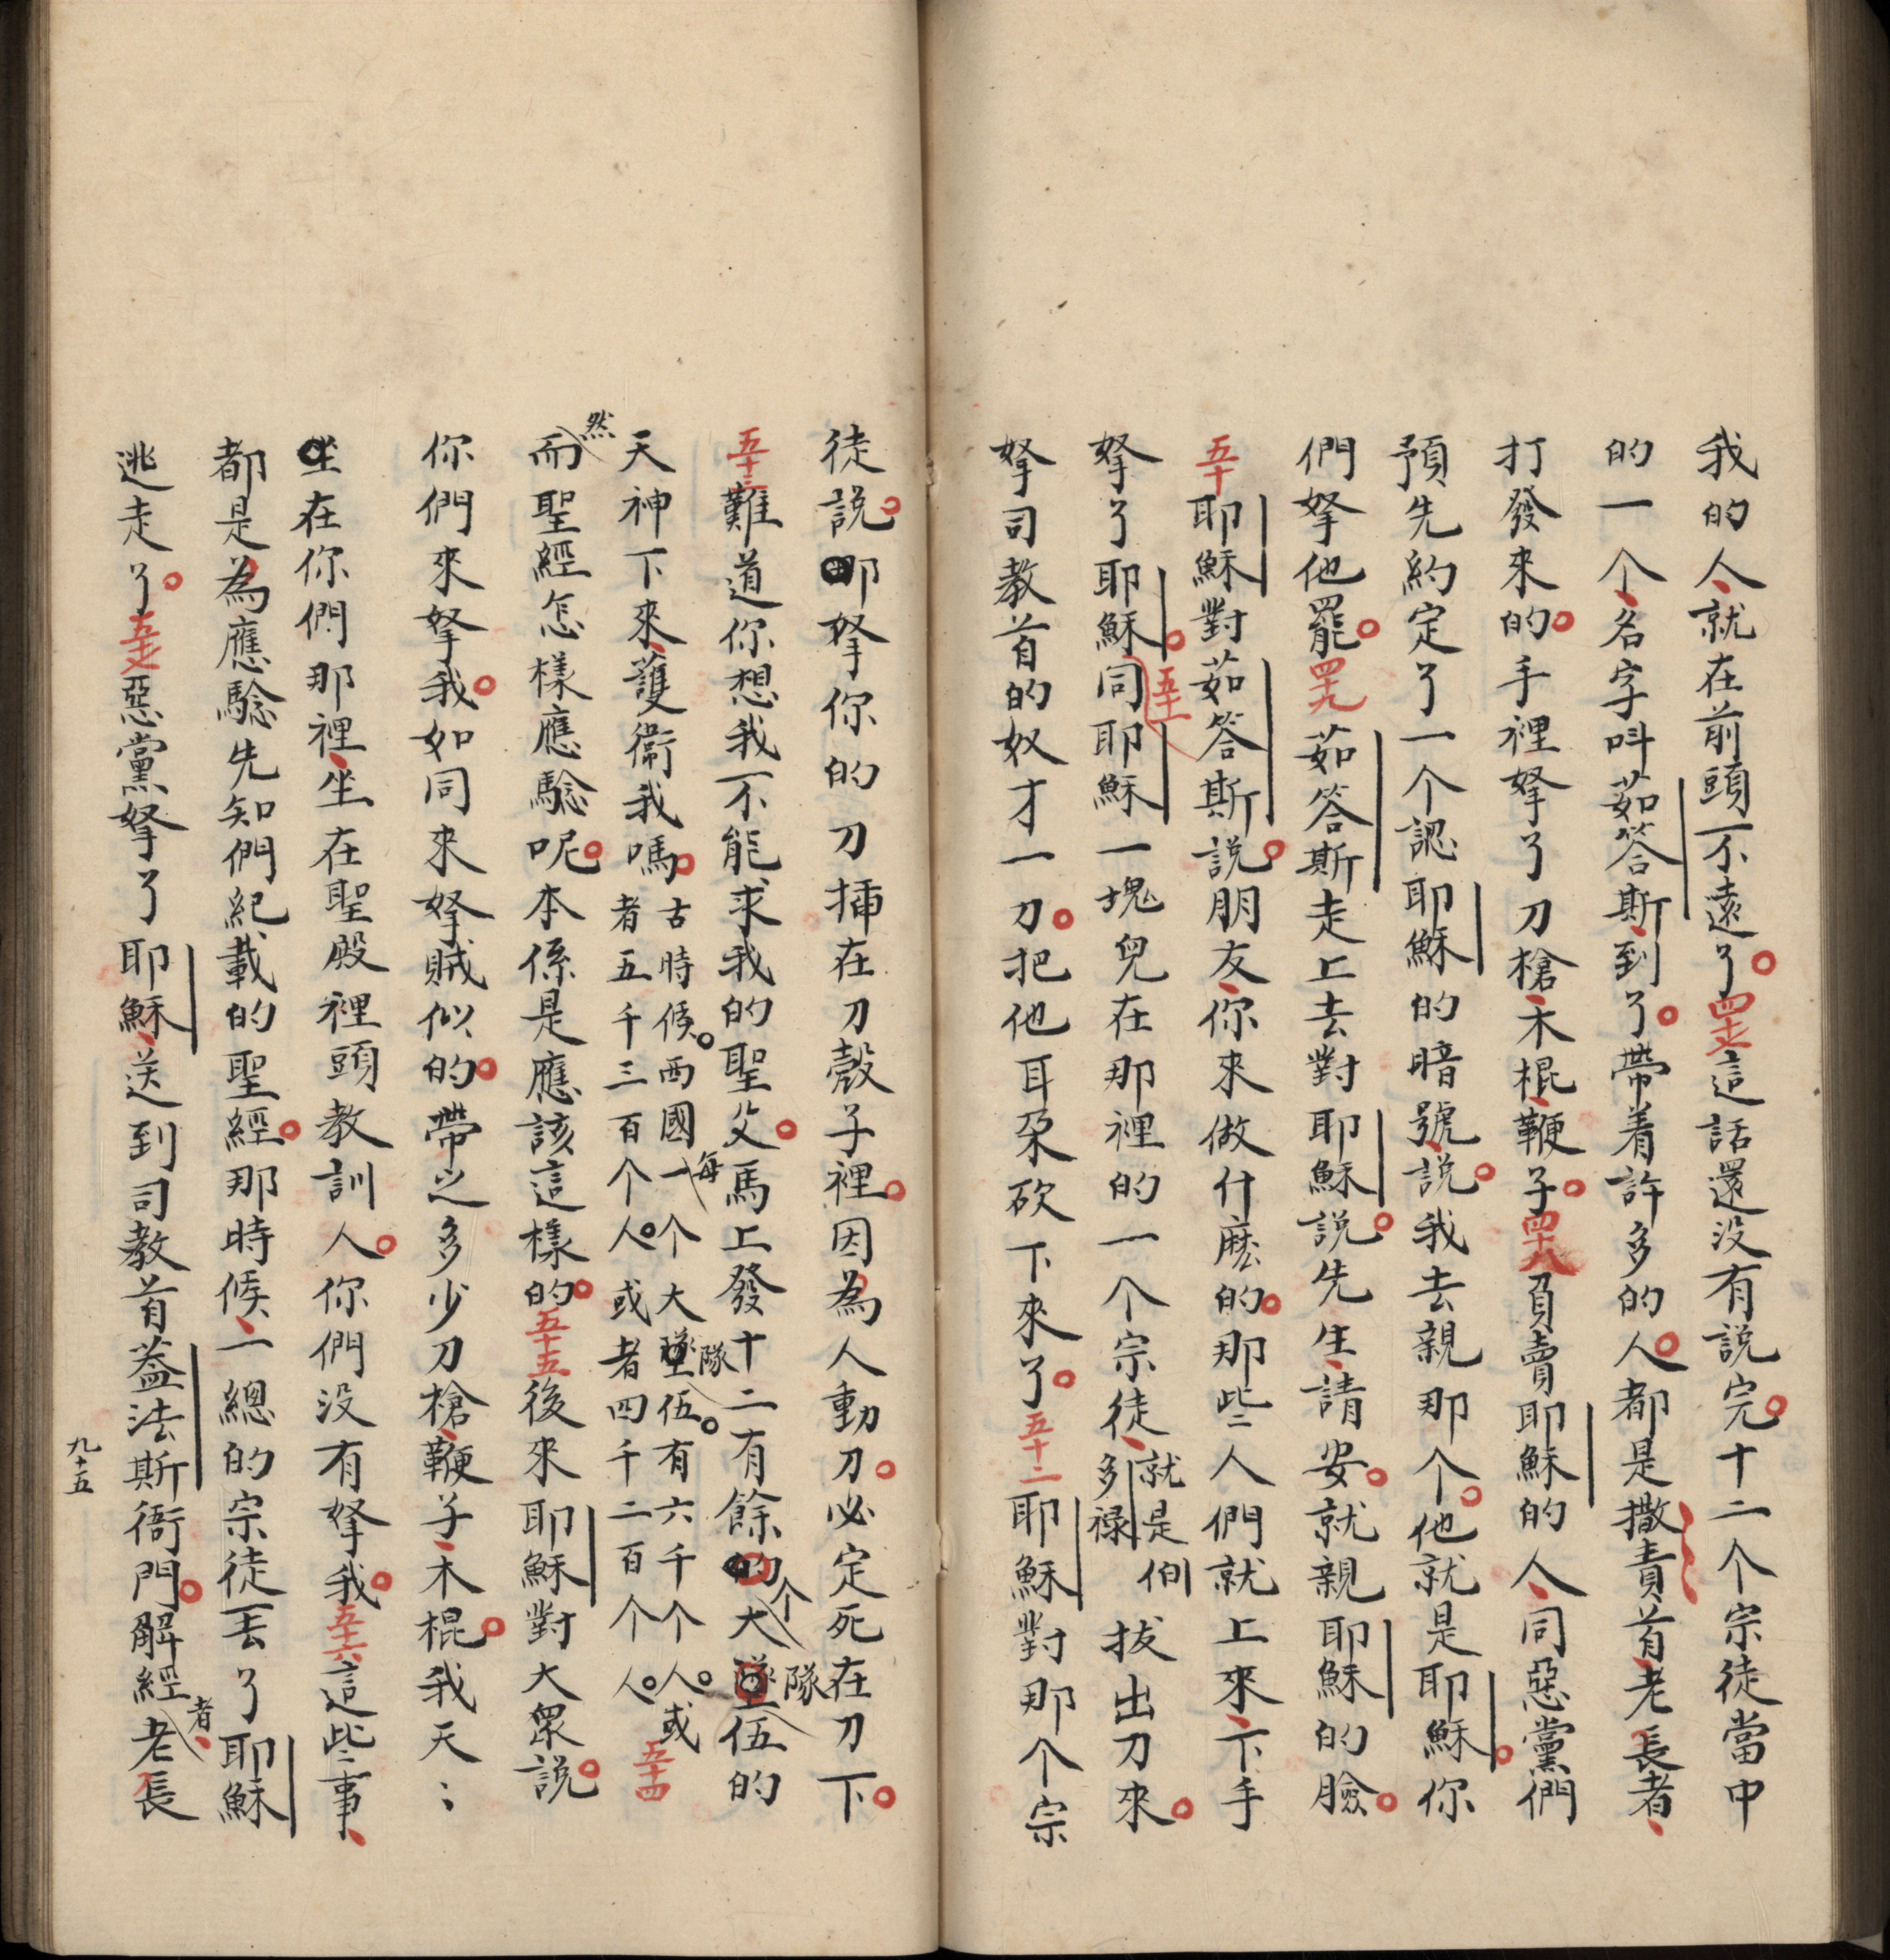 我的人就在前頭不遠了四七這話還沒有説完十二个宗徒當中
的一个名字呌茹答斯到了帶着許多的人都是撒責首老長者
打發來的手裡拏了刀槍木棍鞭子四十八負賣耶穌的人同惡黨們
預先約定了一个認耶穌的暗號説我去親那个他就是耶穌你
們拏他罷四九茹答斯走上去對耶穌説先生請安就親耶穌的臉
五十耶穌對茹答斯説朋友你來做什麽的那些人們就上來下手
拏了耶穌五十一同耶穌一塊兒在那裡的一个宗徒就是伯多禄拔出刀來
拏司教首的奴才一刀把他耳朶砍下來了五十二耶穌對那个宗
徒説拏你的刀揷在刀殼子裡因為人動刀必定死在刀下
五十三難道你想我不能求我的聖父馬上發十二有餘个大隊伍的
天神下來護衛我嗎古時候西國每一个大隊伍有六千个人或
者五千三百个人或者四千二百个人五十四
然而聖經怎樣應騐呢本係是應該這樣的五十五後來耶穌對大衆説
你們來拏我如同來拏賊似的帶之多少刀槍鞭子木棍我天〻
坐在你們那裡坐在聖殿裡頭教訓人你們没有拏我五十六這些事
都是為應騐先知們紀載的聖經那時候一總的宗徒丟了耶穌
逃走了五七惡黨拏了耶穌送到司教首蓋法斯衙門解經者老長
九十五